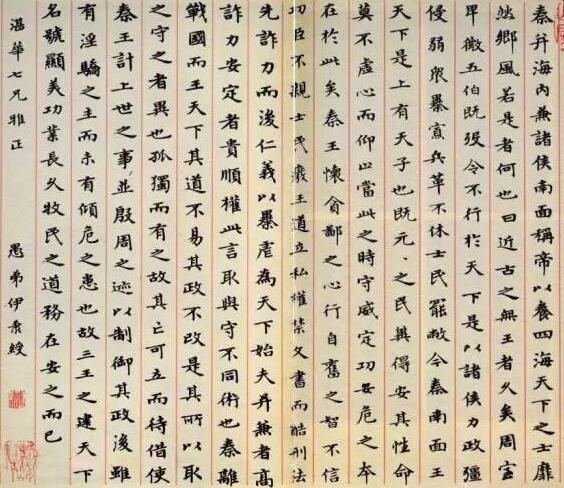 秦并海內兼諸侯南面稱帝以養四海天下之士靡
然鄉風若是者何也曰近古之無王者久矣周室
卑微五伯既歿令不行於天下是以諸侯力政彊
侵弱眾暴寡兵革不休士民罷敝今秦南面王
天下是上有天子也既元〻之民冀得安其性命
莫不虛心而仰上當此之時守威定功安危之本
在於此矣秦王懷貪鄙之心行自奮之智不信
功臣不親士民廢王道立私權禁文書而酷刑法
先詐力而後仁義以暴虐為天下始夫并兼者高
詐力安定者貴順權此言取與守不同術也秦離
戰國而王天下其道不易其政不改是其所以取
之守之者異也孤獨而有之故其亡可立而待借使
秦王計上世之事並殷周之迹以制御其政後雖
有淫驕之主而未有傾危之患也故三王之建天下
名號顯義功業長久牧民之道務在安之而已
湛華七兄雅正 愚弟伊秉綬